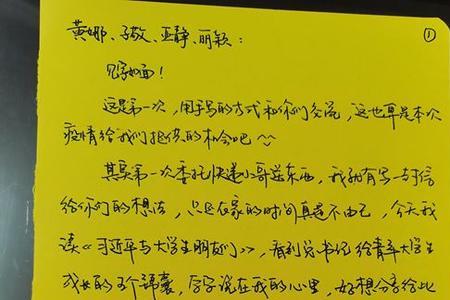 黄娜、子敬、亚静、丽颖: ①
见字如面!
这是第一次,用手写的方式和你们交流,这也算是本次
疫情给我们提供的机会吧~~
其实第一次委托快递小哥送东西,我就有写一封信
给你们的想法,只是在家的时间真是不由己,今天我
读《习近平与大学生朋友们》,看到总书记给青年大学生
成长的五个锦囊,字字说在我的心里,好想分享给此